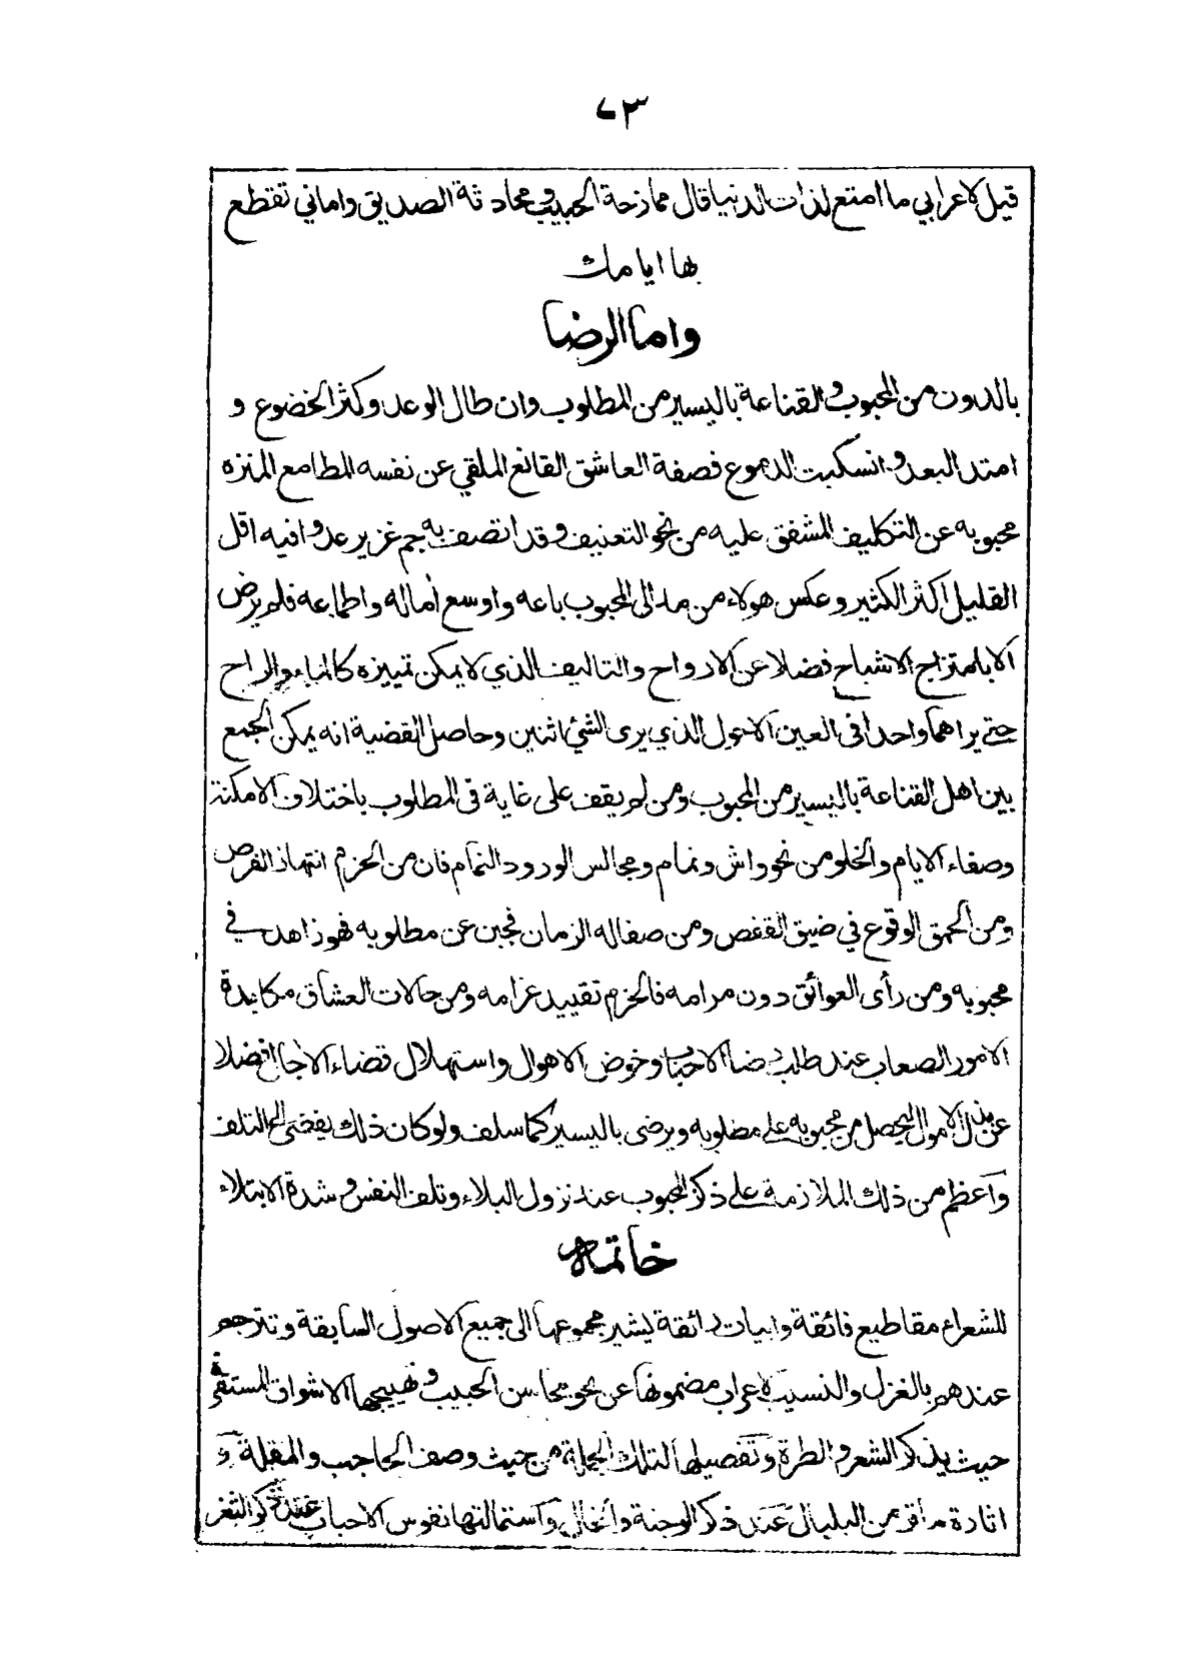 ٧٣
قيل لاعرابي ما امتع لذات الدنيا قال ممازحة الحبيب ومحادثة الصديق واماني تقطع
بها ايامك
واما الرضا
بالدون من المحبوب والقناعة باليسير من المطلوب وان طال الوعد وكثر الخضوع و
امتد البعد وانسكبت الدموع فصفة العاشق القانع الملقي عن نفسه المطامع المنزه
محبوبه عن التكليف المشفق عليه من نحو التعنيف وقد اتصف به جم غزير عدوا فيه اقل
القليل اكثر الكثير وعكس هولاء من مد الى المحبوب باعه واوسع أماله واطماعه فلم يرض
الا بامتزاج الاشباح فضلا عن الارواح والتاليف الذي لا يمكن تمييزه كالماء والراح
حتى يراهما واحدا فى العين الاحول الذي يرى الشئ اثنين وحاصل القضية انه يمكن الجمع
بين اهل القناعة باليسير من المحبوب ومن لم يقف على غاية فى المطلوب باختلاف الامكنة
وصفاء الايام والخلو من نحو واش ونمام ومجالس الورود والنمام فان من الحزم انتهاز الفرص
ومن الحمق الوقوع في ضيق القفص ومن صفا له الزمان فجبن عن مطلوبه فهو زاهد في
محبوبه ومن رأى العوائق دون مرامه فالحزم تقييد غرامه ومن حالات العشاق مكابدة
الامور الصعاب عند طلب رضا الاحباب وخوض الاهوال واستهلال قضاء الاجال فضلا
عن بذل الاموال ليحصل من محبوبه على مطلوبه ويرضى باليسير كما سلف ولو كان ذلك يفضى الى التلف
وأعظم من ذلك الملازمة على ذكر المحبوب عند نزول البلاء وتلف النفس وشدة الابتلاء
خاتمه
للشعراء مقاطيع فائقة وابيات رائقة يشير مجموعها الى جميع الاصول السابقة وتترجم
عندهم بالغزل والنسيب لاعراب مضمونها عن نحو محاسن الحبيب وتهييجها الاشواق المستقرة
حيث يذكر الشعر والطرة وتفصيلها لتلك الجملة من حيث وصف الحاجب والمقلة و
اثارة ما قر من البلبال عند ذكر الوجنة والخال واستمالتها نفوس الاحباب عند ذكر الثغر